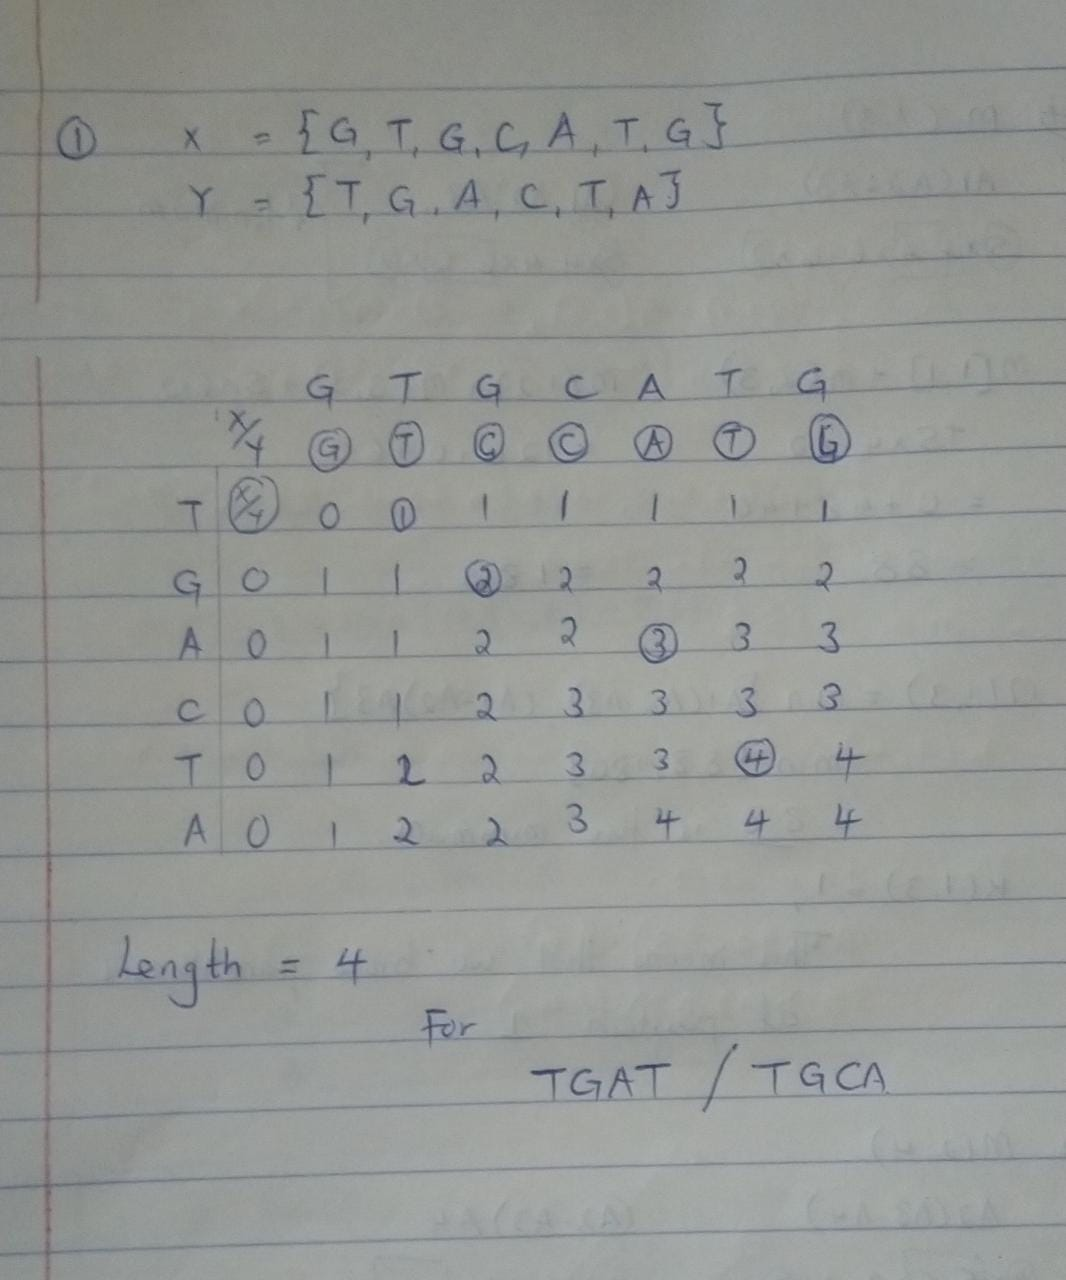 ① X = {G, T, G, C, A, T, G}
Y = {T, G, A, C, T, A}
G T G C A T G
X/Y G T G C A T G
T X/Y 0 1 1 1 1 1 1
G 0 1 1 2 2 2 2 2
A 0 1 1 2 2 3 3 3
C 0 1 1 2 3 3 3 3
T 0 1 2 2 3 3 4 4
A 0 1 2 2 3 4 4 4
Length = 4
For
TGAT / TGCA